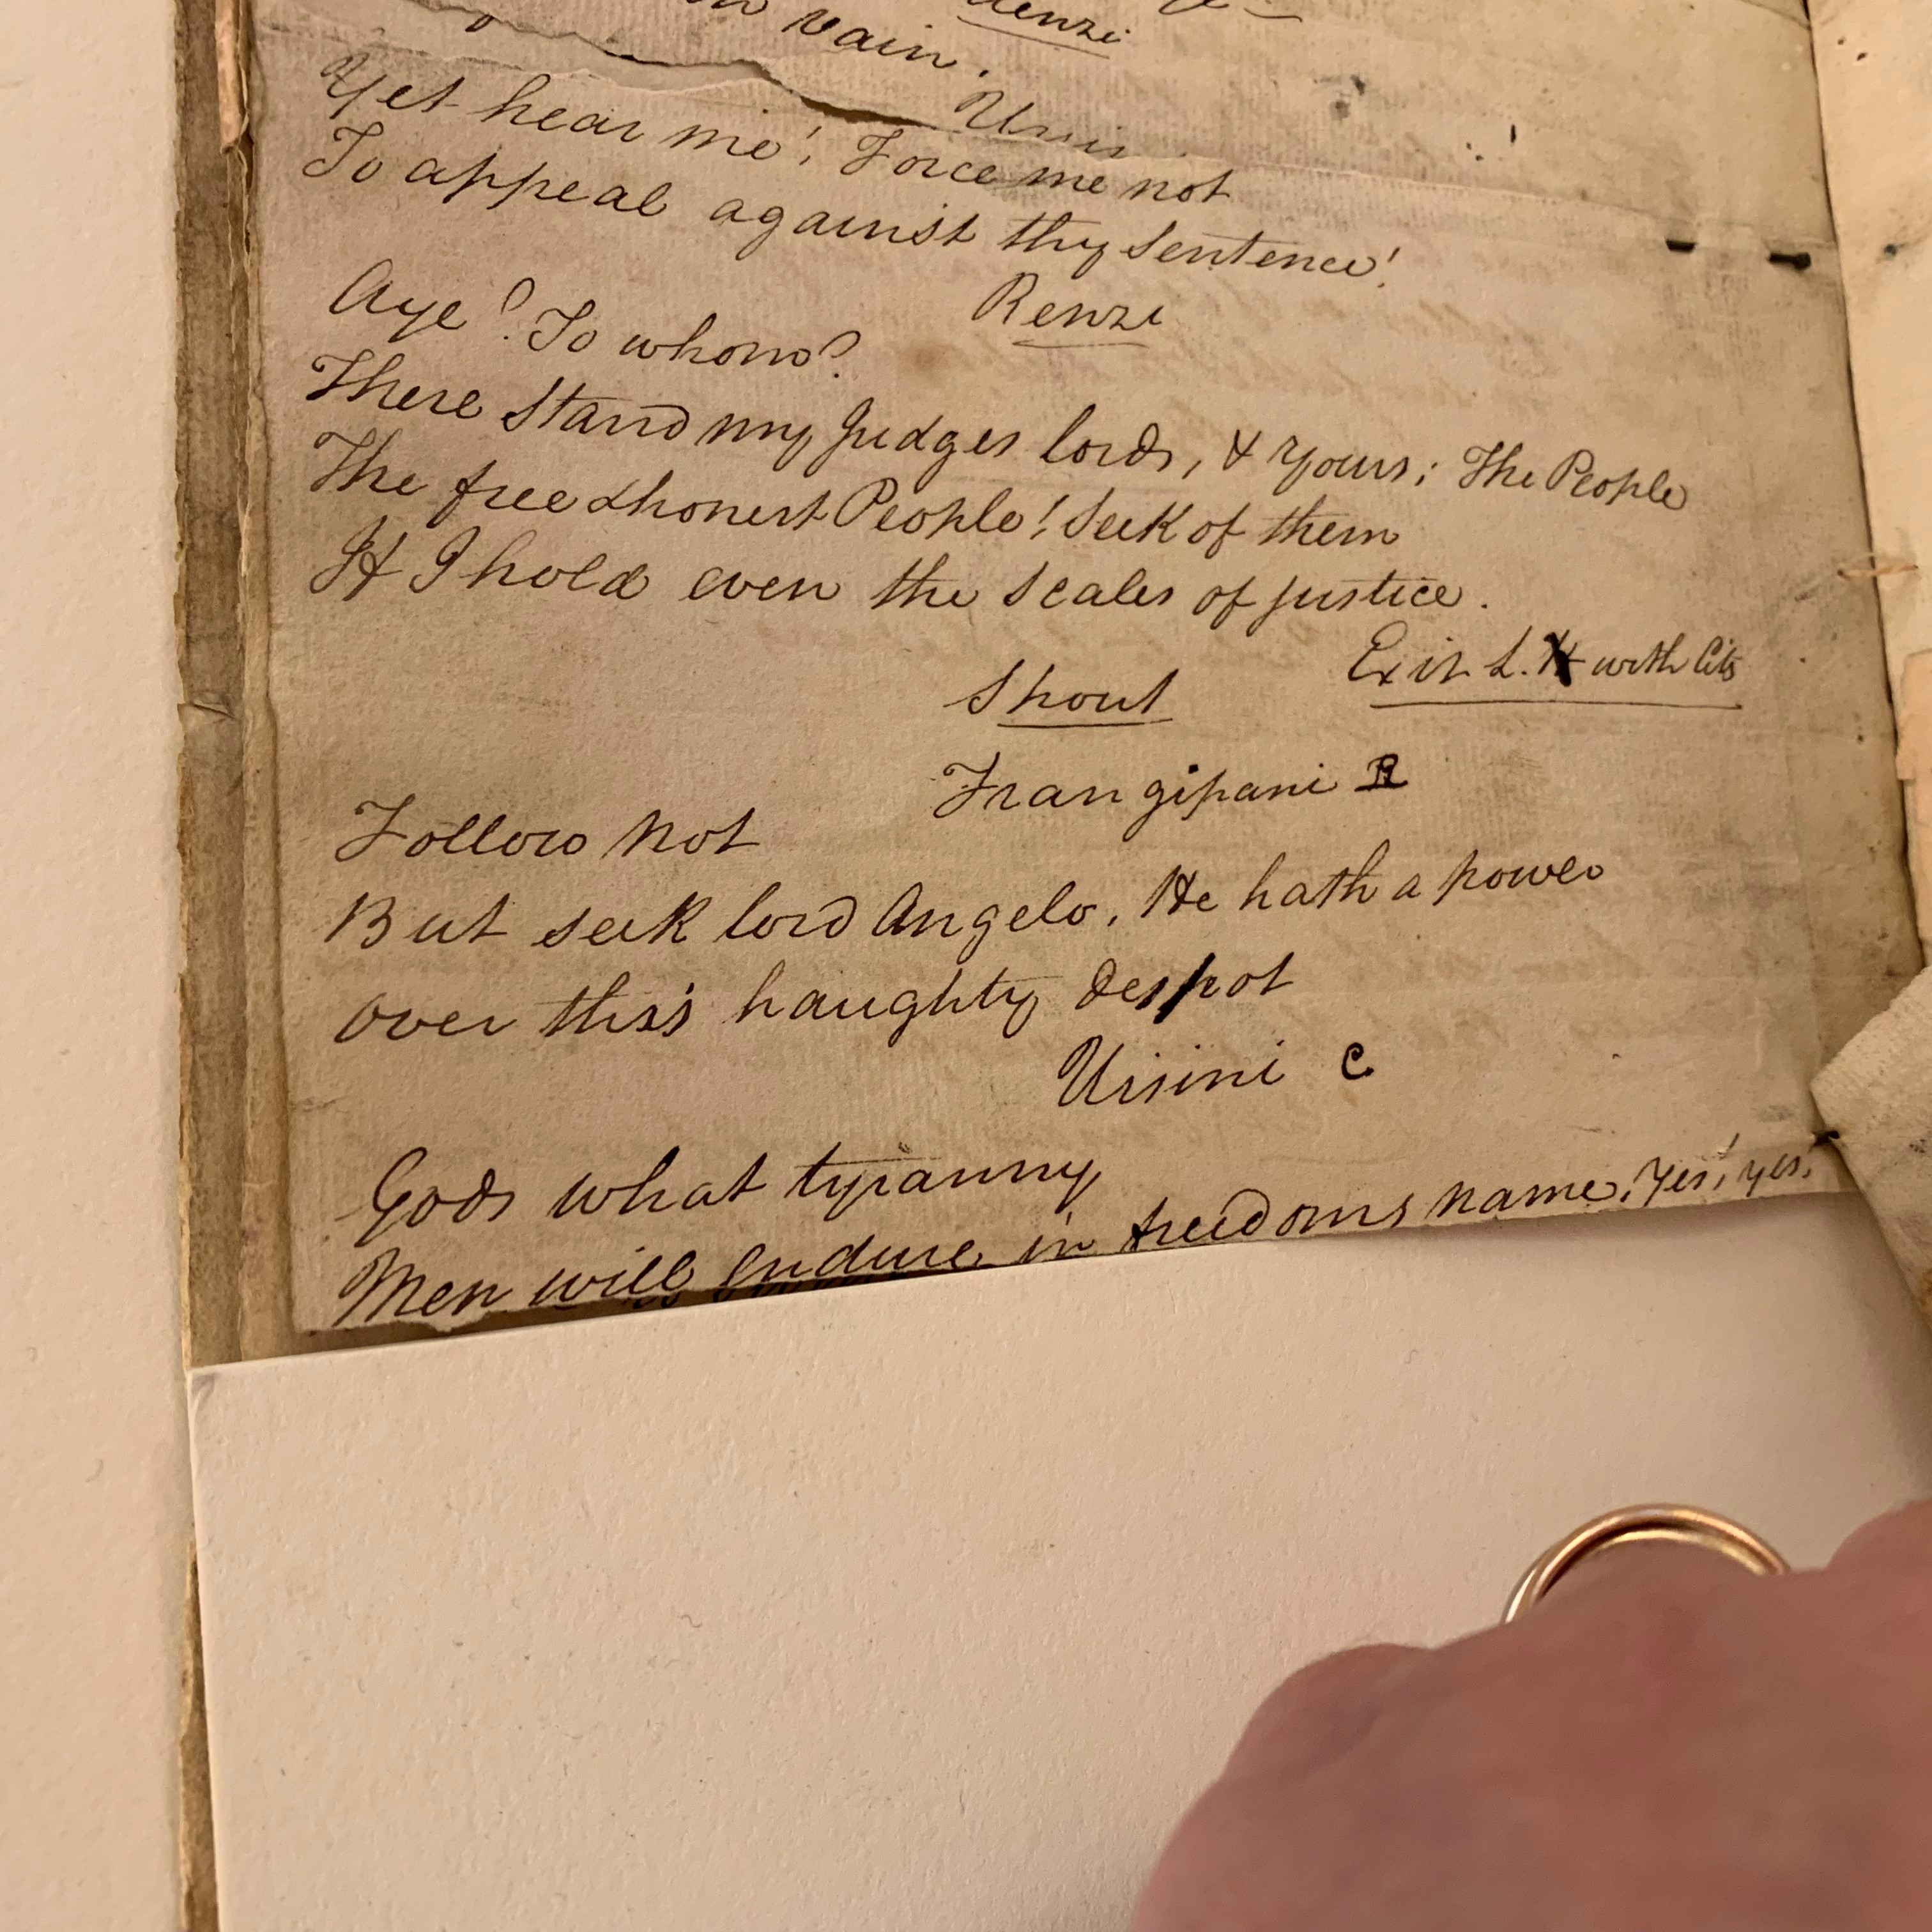 Renzi
vain.
Ursin
Yet hear me! Force me not
To appeal against thy Sentence!
Renzi
Aye? To whom?
There Stand my Judges lords, & yours; The People
The free & honest People! Seek of them
If I hold even the Scales of justice.
Exit L. with Cits
Shout
Frangipani R
Follow Not
But seek lord Angelo, He hath a power
Over this haughty despot
Ursini C
Gods what tyranny
Men will endure in freedoms name, Yes! yes!